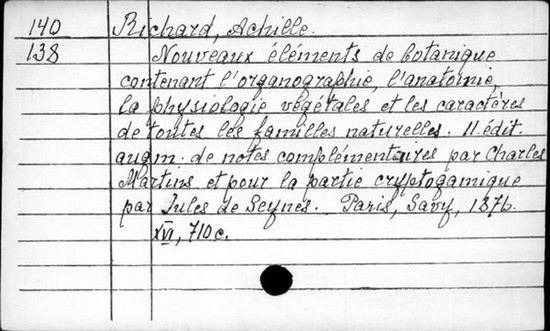 140 Richard, Achille.
138 Nouveaux éléments de botanique
contenant l'organographie, l'anatomie,
la physiologie végétales et les caractères
de toutes les familles naturelles. 11. édit.
augm. de notes complémentaires par Charles
Martins et pour la partie cryptogamique
par Jules de Seynes. Paris, Savy, 1876.
XVI, 710 c.